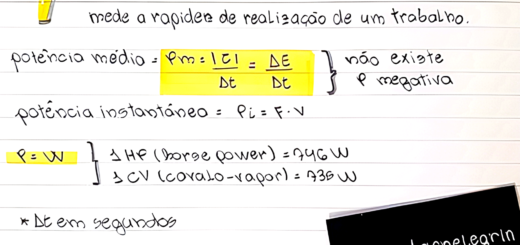 mede a rapidez de realização de um trabalho.
potência médio = Pm = |τ| / Δt = ΔE / Δt } não existe P negativa
potência instantâneo = Pi = F · V
P = W } 1 HP (horse power) = 746 W
1 CV (cavalo-vapor) = 735 W
* Δt em segundos